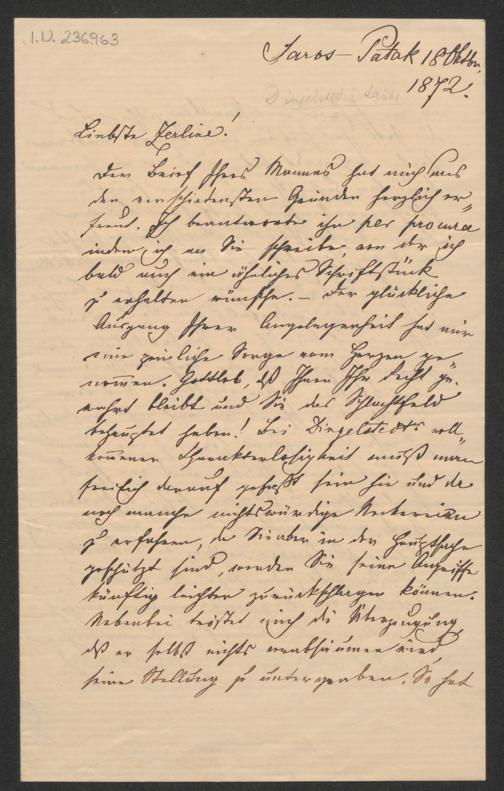 I.N. 236.963
Saros-Patak 18 Oktbr.
1872.
Dingelstedt
Liebste Zerline!
Der Brief Ihres Mannes hat mich aus
den verschiedensten Gründen herzlich er-
freut. Ich beantworte ihn per procura
indem ich an Sie schreibe, von der ich
bald auch ein ähnliches Schriftstück
zu erhalten wünsche. – Der glückliche
Ausgang Ihrer Angelegenheit hat mir
eine peinliche Sorge vom Herzen ge-
nommen. Gottlob, daß Ihnen Ihr Recht ge-
wahrt bleibt und Sie das Schlachtfeld
behauptet haben! Bei Dingelstedts voll-
kommener Charakterlosigkeit muß man
freilich darauf gefaßt sein hie und da
noch manche nichtswürdige Neckereien
zu erfahren, da Sie aber in der Hauptsache
geschützt sind, werden Sie seine Angriffe
künftig leichter zurückschlagen können.
Nebenbei tröstet mich die Überzeugung
daß er selbst nichts verabsäumen wird
seine Stellung zu untergraben. So hat